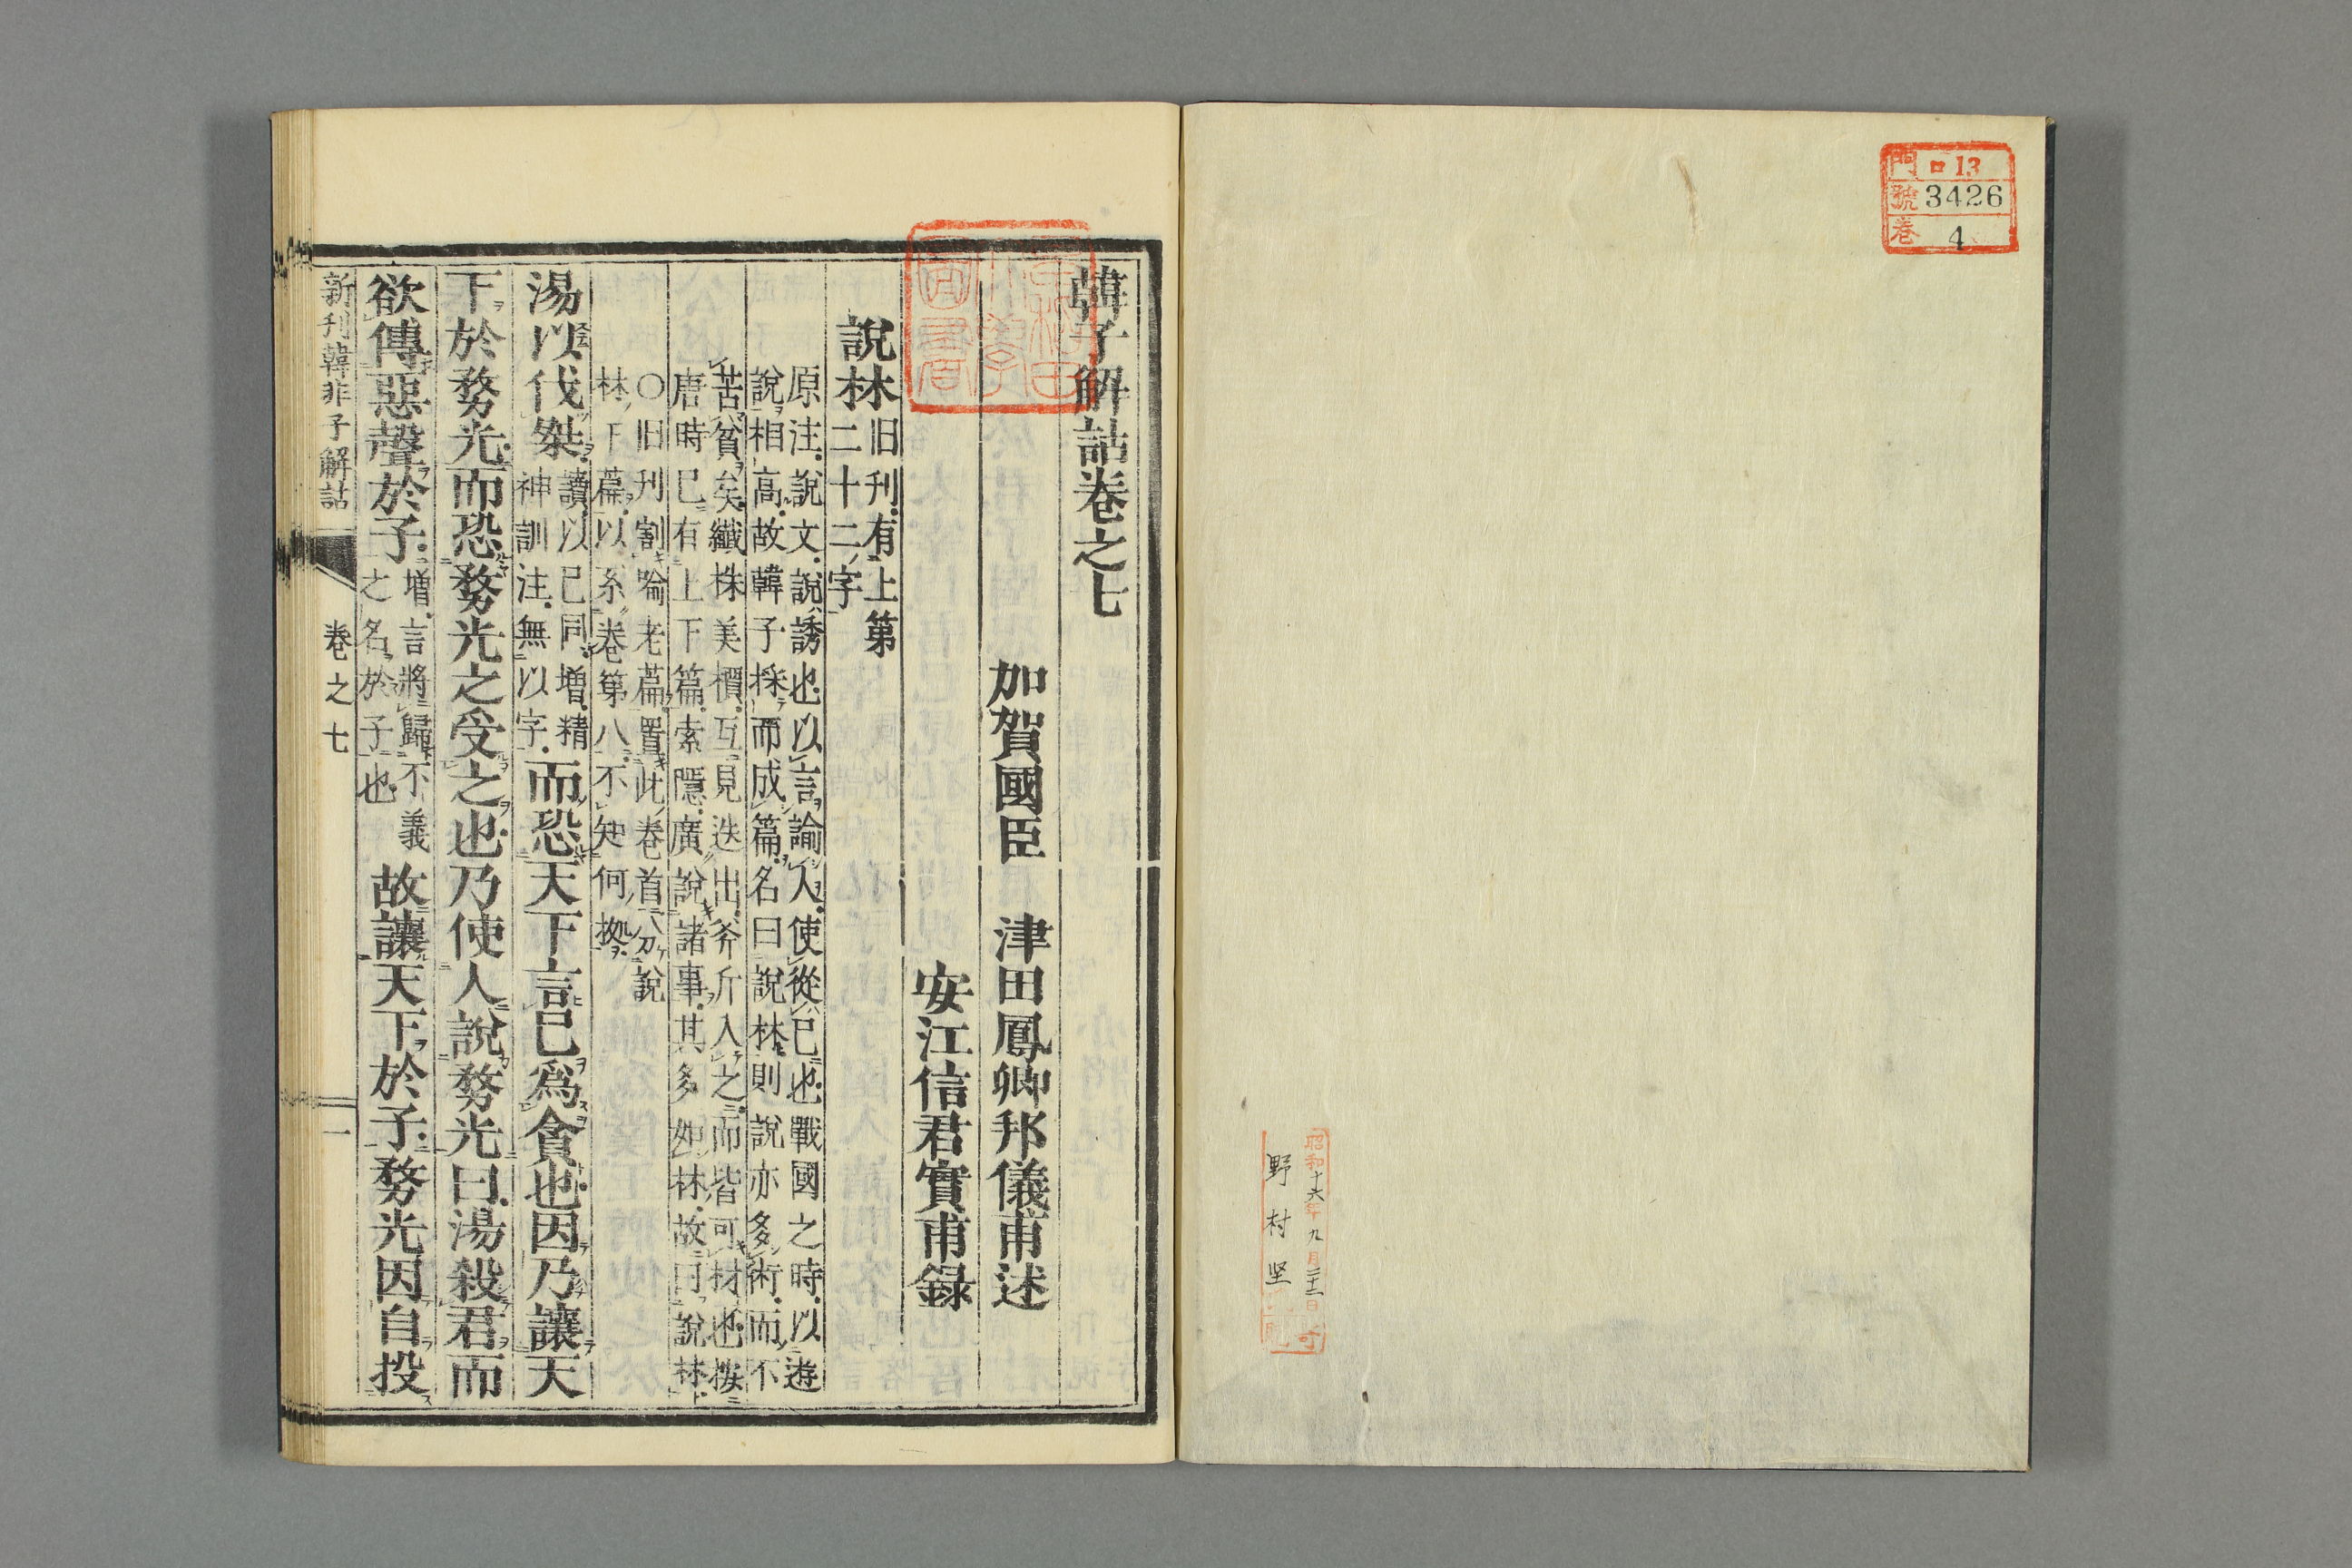 門 ロ13
號 3426
巻 4
昭和十六年九月二十二日
野村堅
韓子解詁卷之七
加賀國臣 津田鳳卿邦儀甫述
安江信君實甫録
說林旧刋有上第
二十二字
原注說文說誘也以言諭人使從已也戰國之時以遊
說相高故韓子採而成篇名曰說林則說亦多術而不
苦貧矣纖株美檟互見迭出斧斤入之而皆可材也按
唐時已有上下篇索隱廣說諸事其多如林故曰說林
〇旧刋割喩老萹置此卷首分說
林下萹以系卷第八不知何拠
湯以伐桀讀以已同増精
神訓注無以字而恐天下言已爲貪也因乃讓天
下於務光而恐務光之受之也乃使人說務光曰湯殺君而
欲傳惡聲於子増言將歸不義
之名於子也故讓天下於子務光因自投
新刋韓非子解詁 卷之七 一